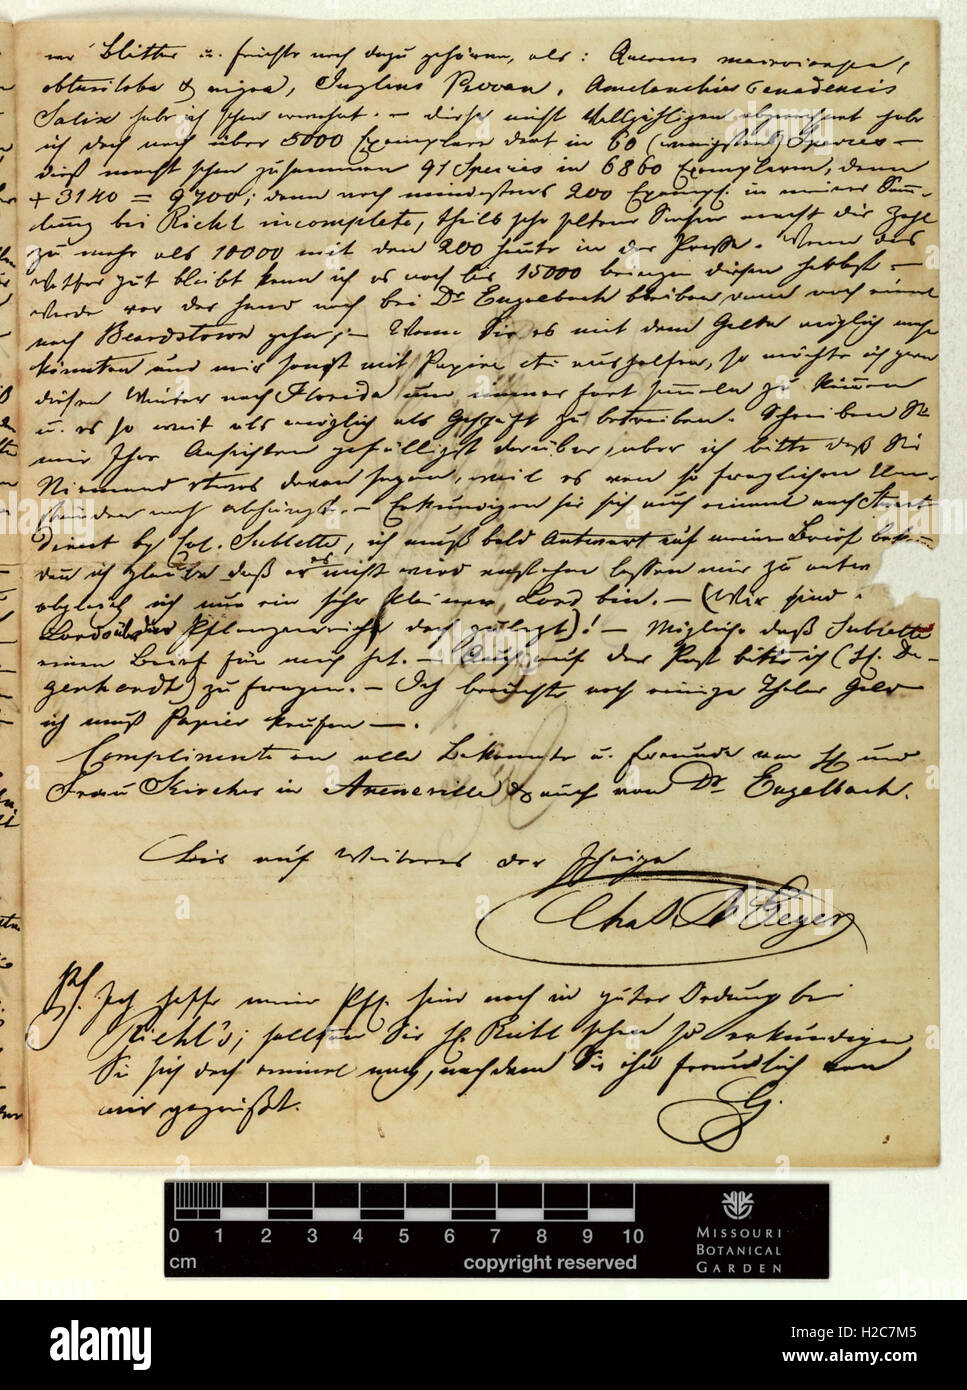 nur Blätter u. Früchte noch dazu gehören, als: Quercus macrocarpa,
obtusiloba & nigra, Juglans Pecan, Amelanchier Canadensis
Salix habe ich schon erwähnt. — diese nicht Vollzähligen abgerechnet habe
ich doch noch über 5000 Exemplare dort in 60 (wenigstens) Species —
dieß macht schon zusammen 91 Species in 6860 Exemplaren, denn
+ 3140 = 9700; denn noch mindestens 200 Exempl. in meiner Samm-
lung bei Riehl incomplete, theils sehr seltene Sachen macht die Zahl
zu mehr als 10000 mit den 200 heute in der Presse. Wenn das
Wetter gut bleibt kann ich es noch bis 15000 bringen diesen Herbst —
Werde vor der Hand noch bei Dr. Engelbach bleiben dann noch einmal
nach Beardstown gehen; — Wenn Sie es mit dem Gelde möglich machen
könnten und mir sonst mit Papier etc aushelfen, so möchte ich gern
diesen Winter nach Florida um immer fort sammeln zu können
u. es so weit als möglich als Geschäft zu betreiben. Schreiben Sie
mir Ihre Ansichten gefälligst darüber, aber ich bitte daß Sie
Niemand etwas davon sagen, weil es von so fraglichen Um-
ständen noch abhängt. — Erkundigen Sie sich auch einmal nach
direct by Col. Sublette, ich muß bald Antwort auf meinen Brief
denn ich glaube daß er es nicht wird anstehen lassen mir zu
obgleich ich nur ein sehr kleiner Lord bin. — (Wir sind
Lords über das Pflanzenreich doch gesetzt)! — Möglich daß Sublette
einen Brief für mich hat. — Auch auf der Post bitte ich (H. De-
genhardt) zu fragen. — Ich brauchte noch einige Thaler Geld
ich muß Papier kaufen —.
Complimente an alle Bekannte u. Freunde von H. und
Frau Kircher in & auch von Dr. Engelbach.
Bis auf Weiteres der Ihrige
Chas. A Geyer
PS. Ich hoffe meine Pfl. sind noch in guter Ordnung bei
Riehl's; sollten Sie H. Riehl sehen so erkundigen
Sie sich doch einmal nach, nachdem Sie ihn freundlich von
mir gegrüßt.
G.
0 1 2 3 4 5 6 7 8 9 10
cm copyright reserved
MISSOURI
BOTANICAL
GARDEN
alamy
Image ID: H2C7M5
www.alamy.com